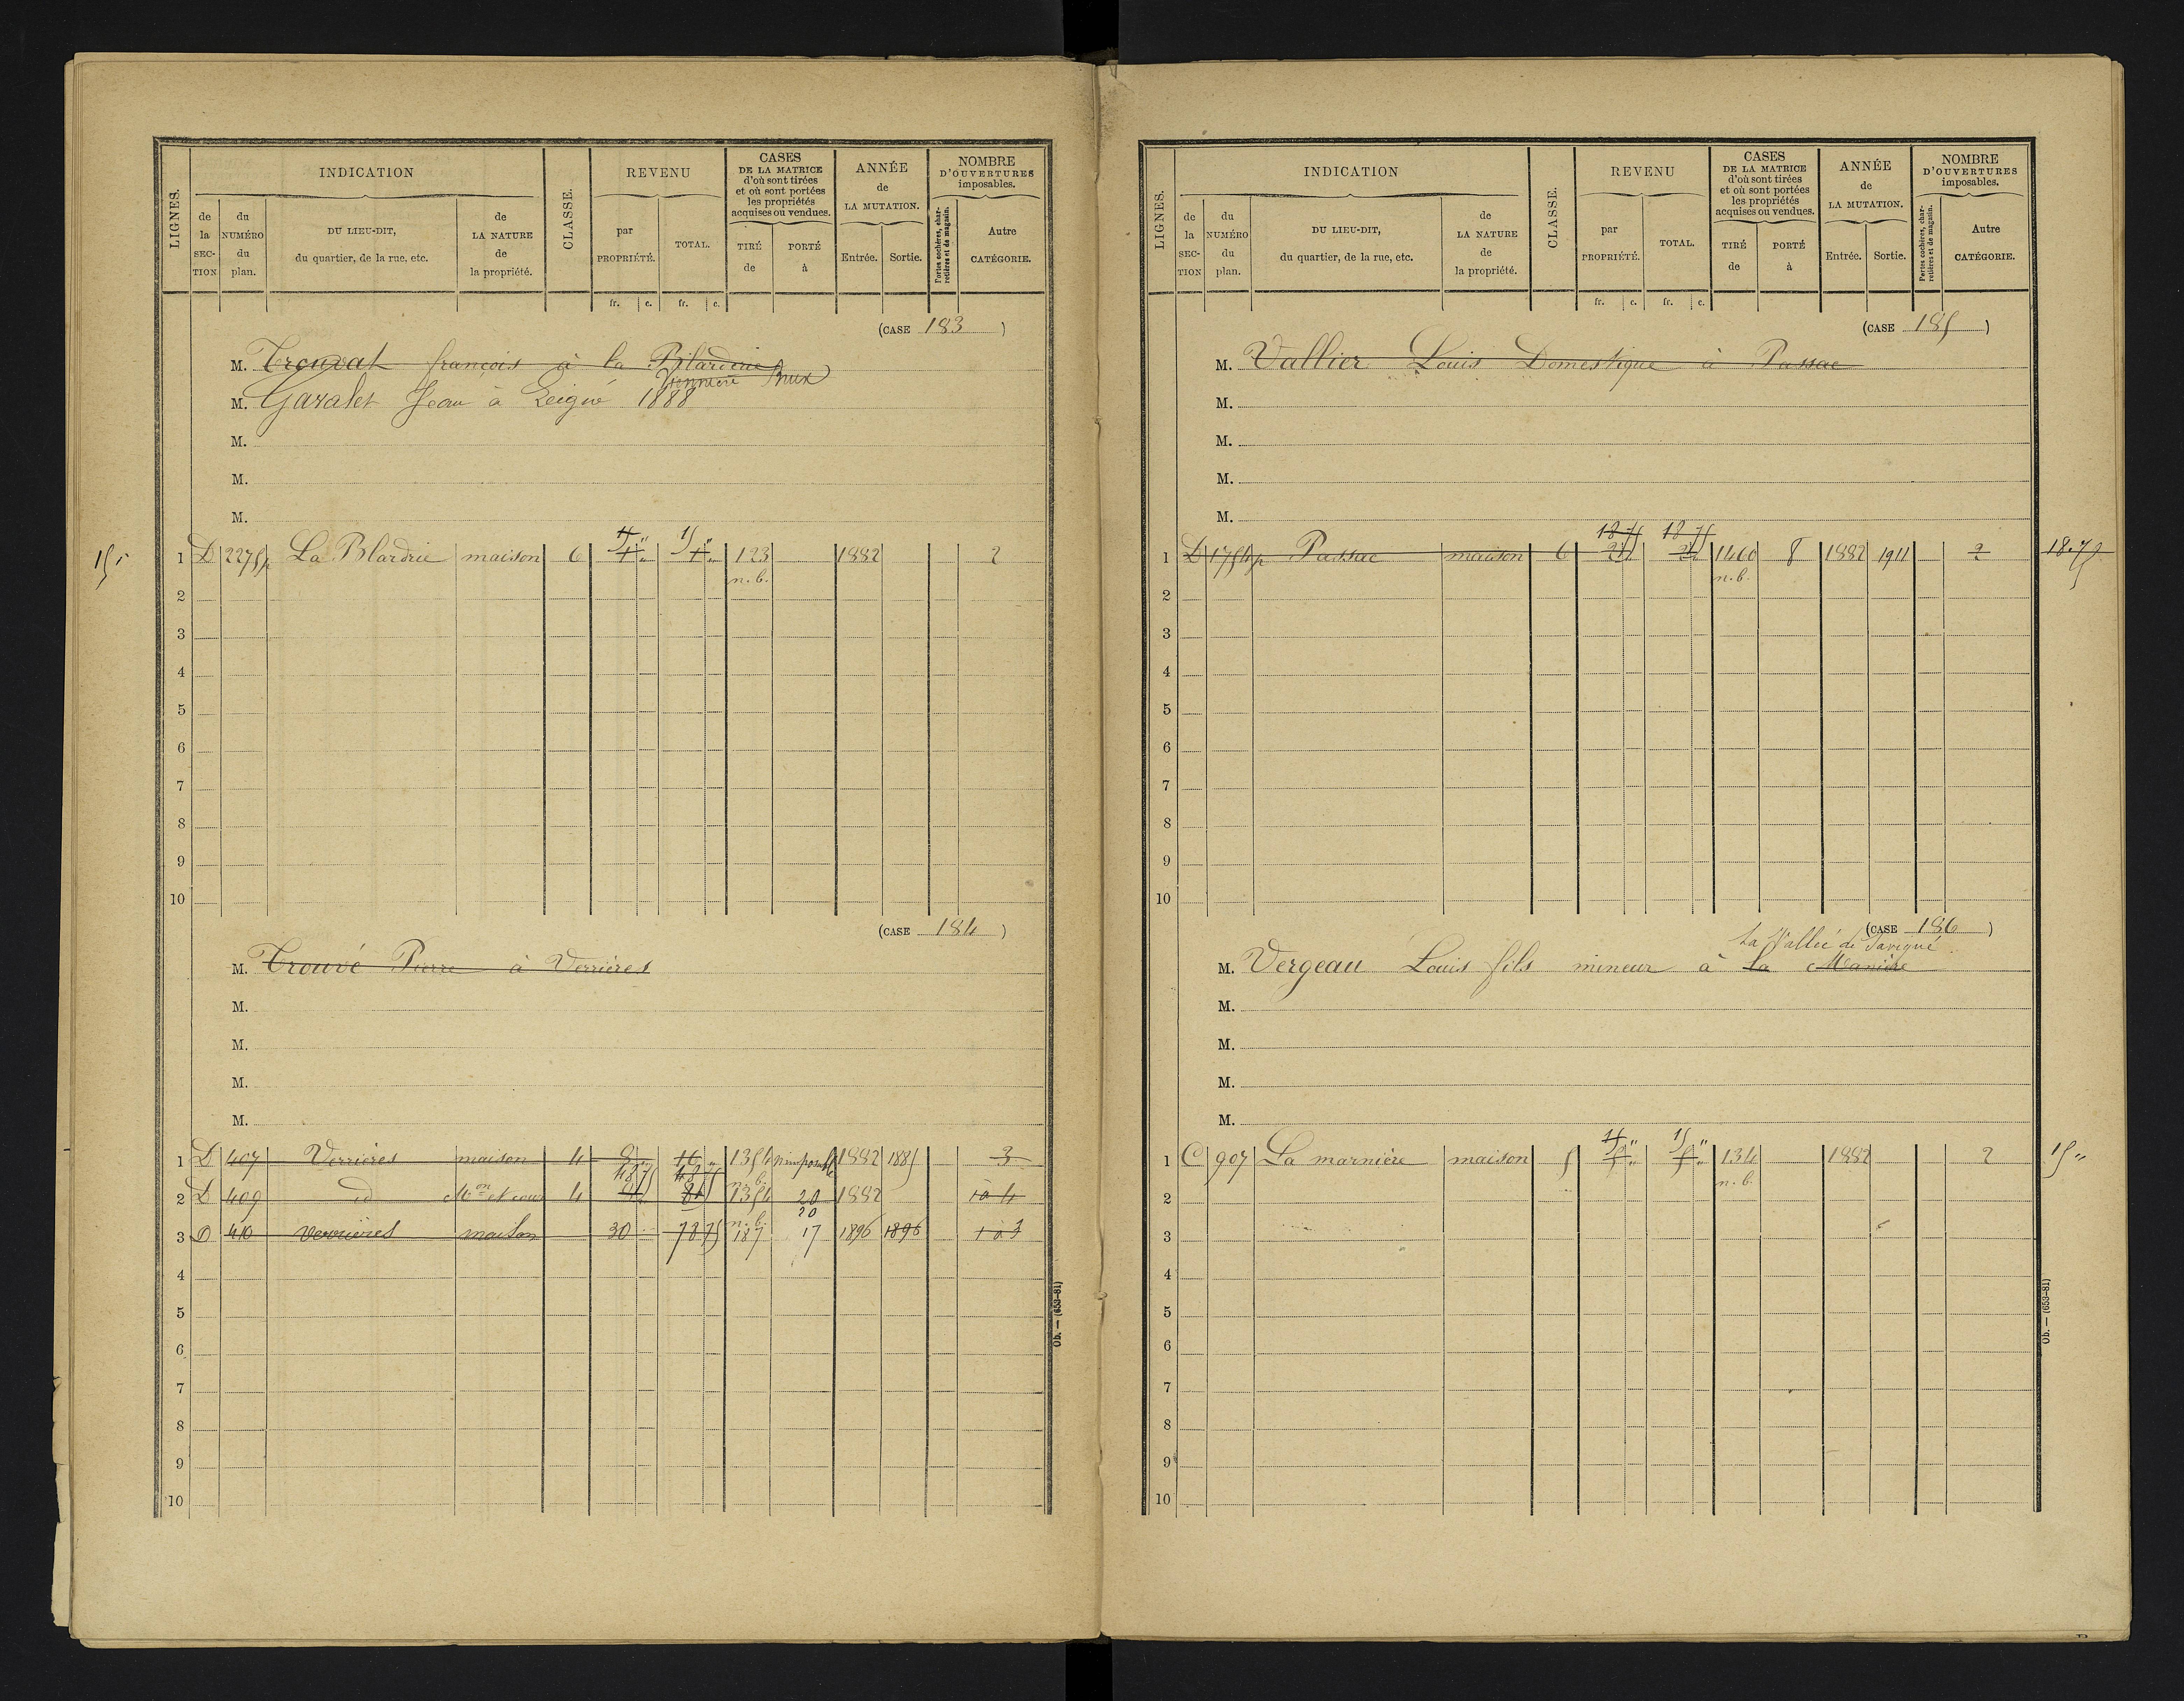 LIGNES.
INDICATION
de la SECTION
du NUMÉRO du plan.
DU LIEU-DIT, du quartier, de la rue, etc.
de LA NATURE de la propriété.
CLASSE.
REVENU
par PROPRIÉTÉ.
TOTAL.
CASES DE LA MATRICE d'où sont tirées et où sont portées les propriétés acquises ou vendues.
TIRÉ de
PORTÉ à
ANNÉE de LA MUTATION.
Entrée.
Sortie.
NOMBRE D'OUVERTURES imposables.
Portes cochères, charretières et de magasin.
Autre CATÉGORIE.
fr. c. fr. c.
(CASE 183)
M. Trouvat françois à la Bilarderie
Brux
M. Gazalet Jean à Leigné 1888
M.
M.
M.
15 "
15 " 15 "
1 D 2275p La Blardrie maison 6 4 " 4 " 123 1882 2
n. b.
2
3
4
5
6
7
8
9
10
(CASE 184)
M. Trouvé Pierre à Verrières
M.
M.
M.
M.
1 D 407 Verrières maison 4 8 16 1354 nimposable 1882 1885 3
48 75 48 75 n. b.
2 D 409 id Mon et cour 4 1354 20 1882 1 à 4
n. b. 20
3 D 410 Verrières maison 30 78 75 187 17 1896 1896 1 à 3
4
5
6
7
8
9
10
Ob. — (653-81)
LIGNES.
INDICATION
de la SECTION
du NUMÉRO du plan.
DU LIEU-DIT, du quartier, de la rue, etc.
de LA NATURE de la propriété.
CLASSE.
REVENU
par PROPRIÉTÉ.
TOTAL.
CASES DE LA MATRICE d'où sont tirées et où sont portées les propriétés acquises ou vendues.
TIRÉ de
PORTÉ à
ANNÉE de LA MUTATION.
Entrée.
Sortie.
NOMBRE D'OUVERTURES imposables.
Portes cochères, charretières et de magasin.
Autre CATÉGORIE.
fr. c. fr. c.
(CASE 185)
M. Vallier Louis Domestique à Passac
M.
M.
M.
M.
18 75 18 75
1 D 1754p Passac maison 6 1460 8 1882 1911 2 18.75
n. b.
2
3
4
5
6
7
8
9
10
(CASE 186)
La Vallée de Savigné
M. Vergeau Louis fils mineur à la Manière
M.
M.
M.
M.
15 " 15 "
1 C 907 La marnière maison 5 5 " 5 " 134 1882 2 15 "
n. b.
2
3
4
5
6
7
8
9
10
Ob. — (653-81)